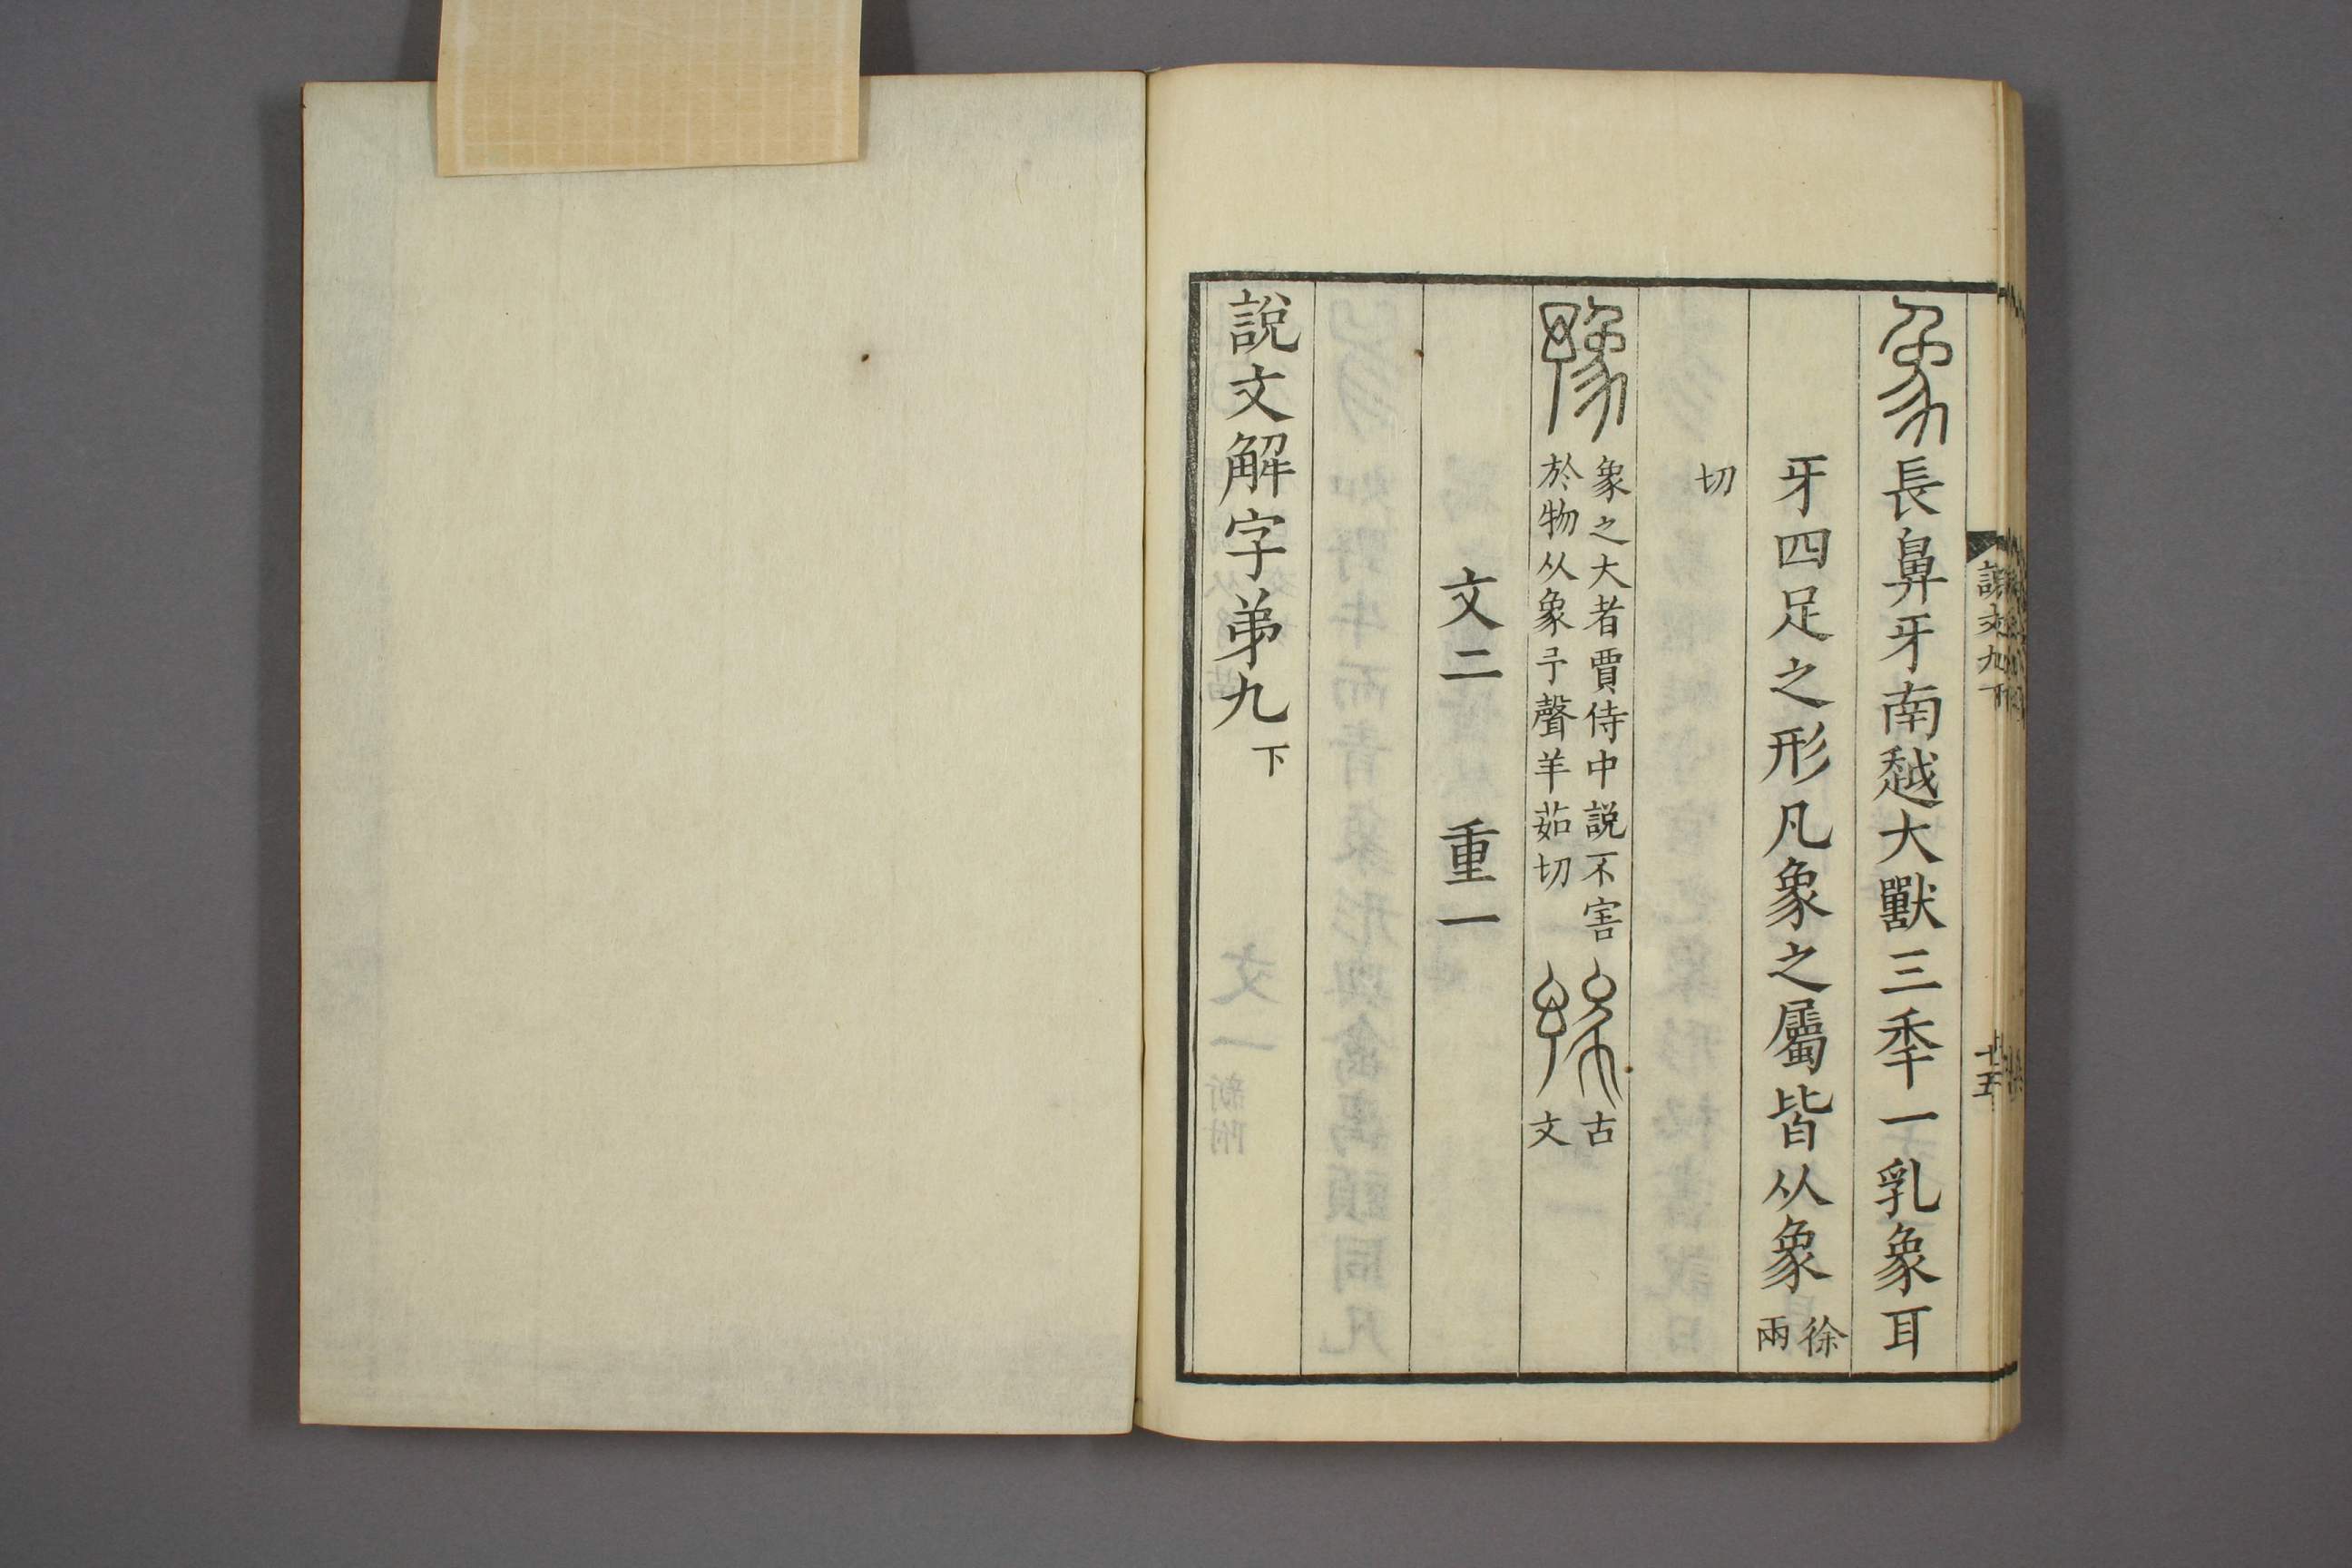 象長鼻牙南越大獸三秊一乳象耳
牙四足之形凡象之屬皆从象徐兩
切
豫象之大者賈侍中說不害
於物从象予聲羊茹切
古文
文二 重一
說文解字弟九下
說文九下
十五